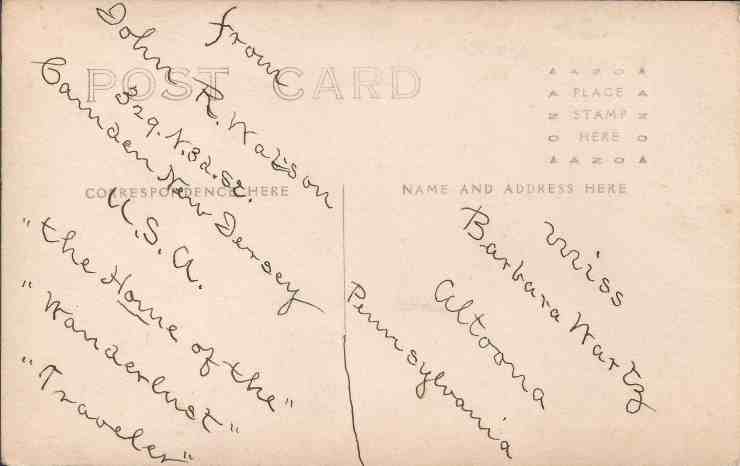 POST CARD
CORRESPONDENCE HERE
NAME AND ADDRESS HERE
AZOA
PLACE
STAMP
HERE
AZOA
from
John R. Watson
329. N. 3d. St.
Camden New Jersey
U.S.A.
"the Home of the"
"Wanderlust"
"Traveler"
Miss
Barbara Wartz
Altoona
Pennsylvania